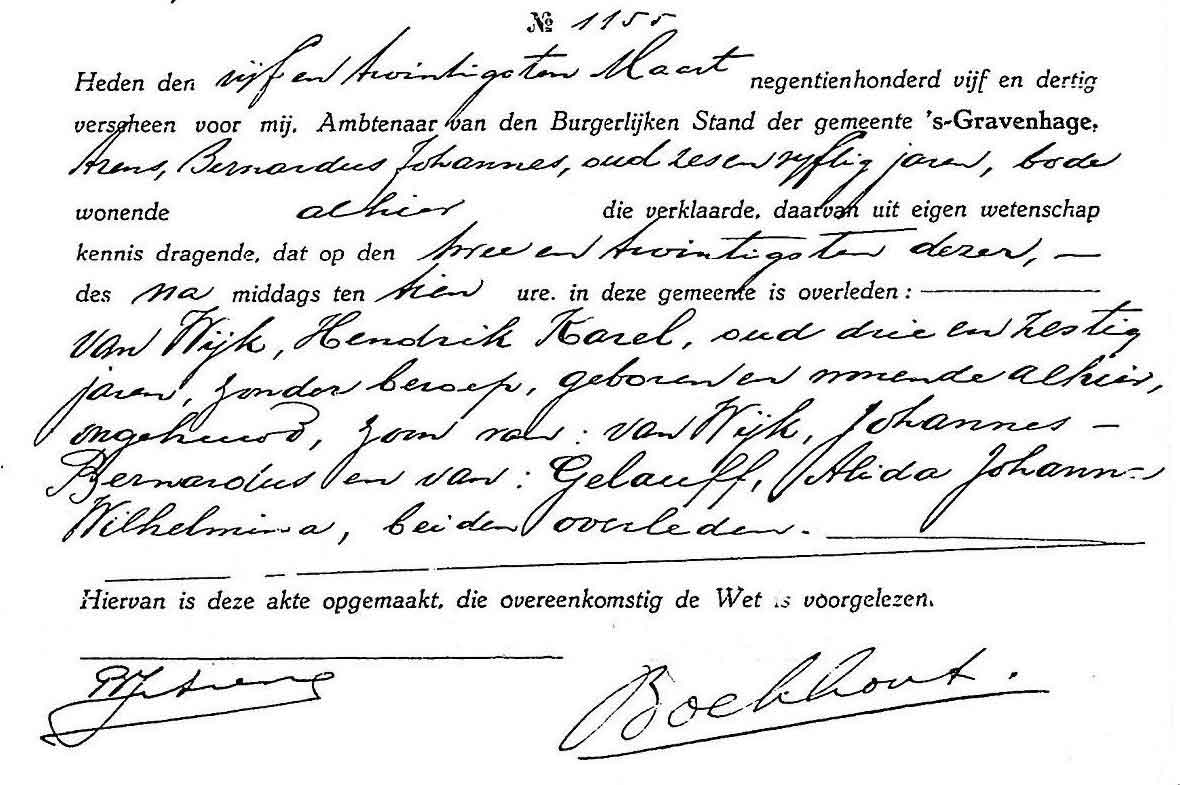 № 1155
Heden den vijf en twintigsten Maart negentienhonderd vijf en dertig
verscheen voor mij, Ambtenaar van den Burgerlijken Stand der gemeente 's-Gravenhage,
Arens, Bernardus Johannes, oud zes en vijftig jaren, bode
wonende alhier die verklaarde, daarvan uit eigen wetenschap
kennis dragende, dat op den twee en twintigsten dezer, —
des na middags ten tien ure, in deze gemeente is overleden : —
van Wijk, Hendrik Karel, oud drie en zestig
jaren, zonder beroep, geboren en wonende alhier,
ongehuwd, zoon van : van Wijk, Johannes –
Bernardus en van : Gelauff, Alida Johann-
Wilhelmina, beiden overleden. —
Hiervan is deze akte opgemaakt, die overeenkomstig de Wet is voorgelezen.
BJArens
Boekhout.